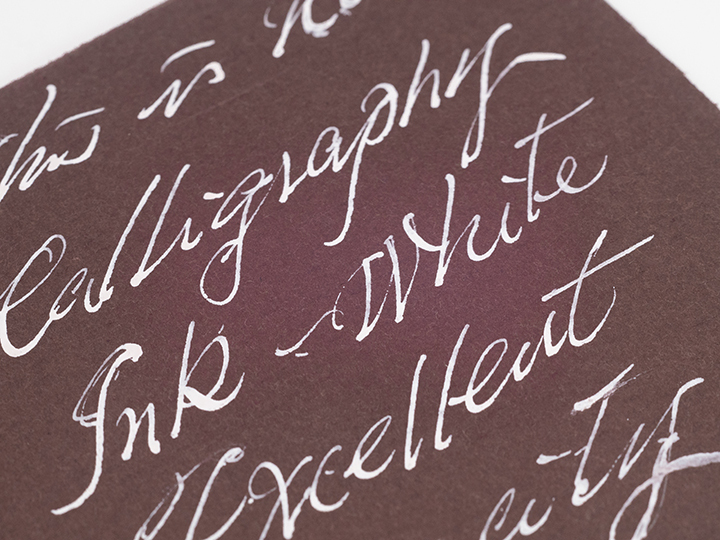 This is
Calligraphy
Ink - White
Excellent
city